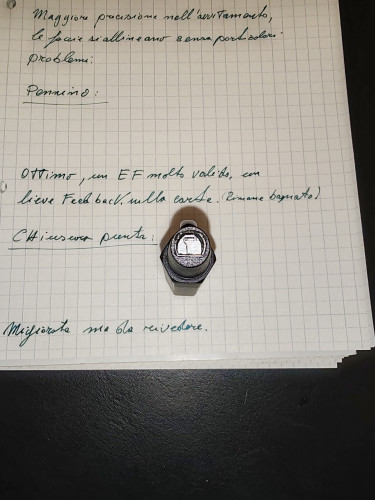 Maggiore precisione nell'avvitamento,
le facce si allineano senza particolari
problemi.
Pennino:
Ottimo, un EF molto valido, un
lieve Feedback sulla carta. (Rimane bagnato)
CHiusura punta:
Migliorata ma da rivedere.